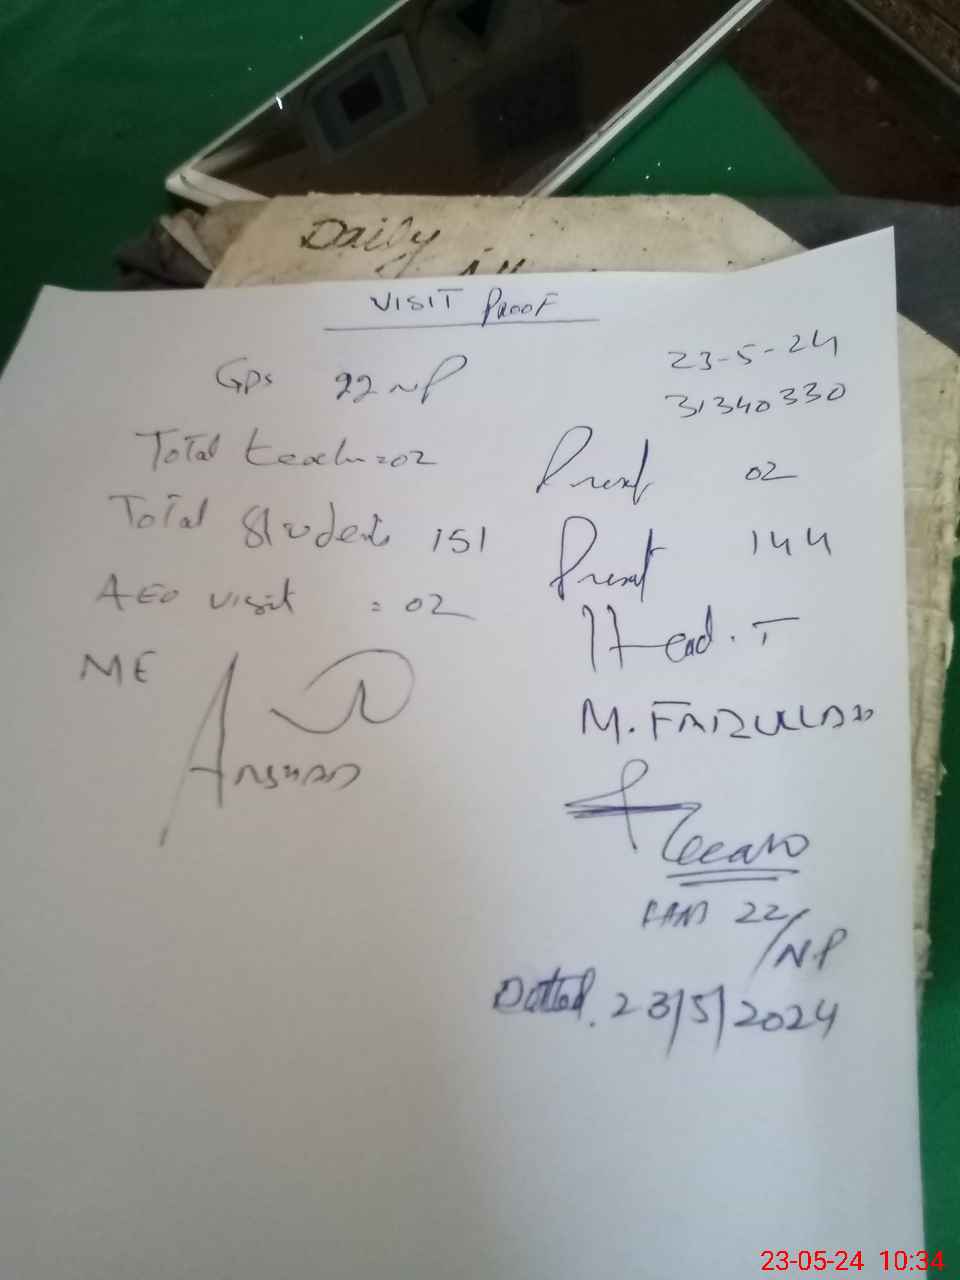 Daily
VISIT PROOF
GPS 22 NP 23-5-24
31340330
Total teach =02 Present 02
Total Students 151 Present 144
AEO visit = 02 Head. T
ME
Arshad
22/NP
Dated. 23/5/2024
23-05-24 10:34